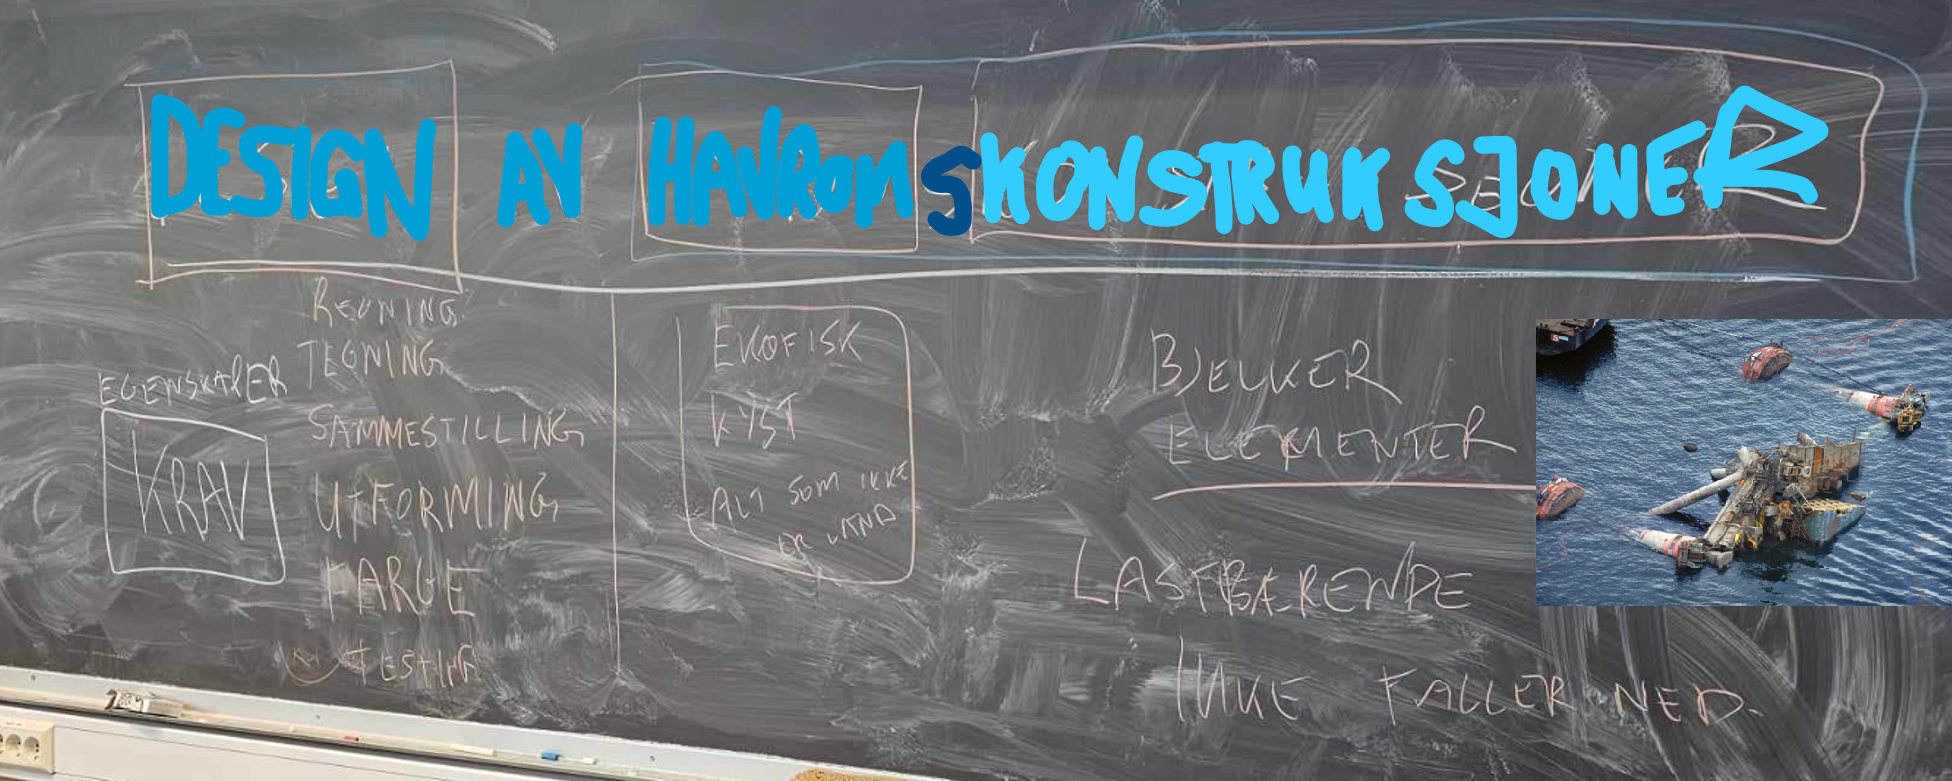 DESIGN AV HAVROMSKONSTRUKSJONER
REGNING
TEGNING
EGENSKAPER
KRAV
SAMMESTILLING
UTFORMING
FARGE
TESTING
EKOFISK
KYST
ALT SOM IKKE
ER LAND
BJELKER
ELEMENTER
LASTBÆRENDE
IKKE FALLER NED.